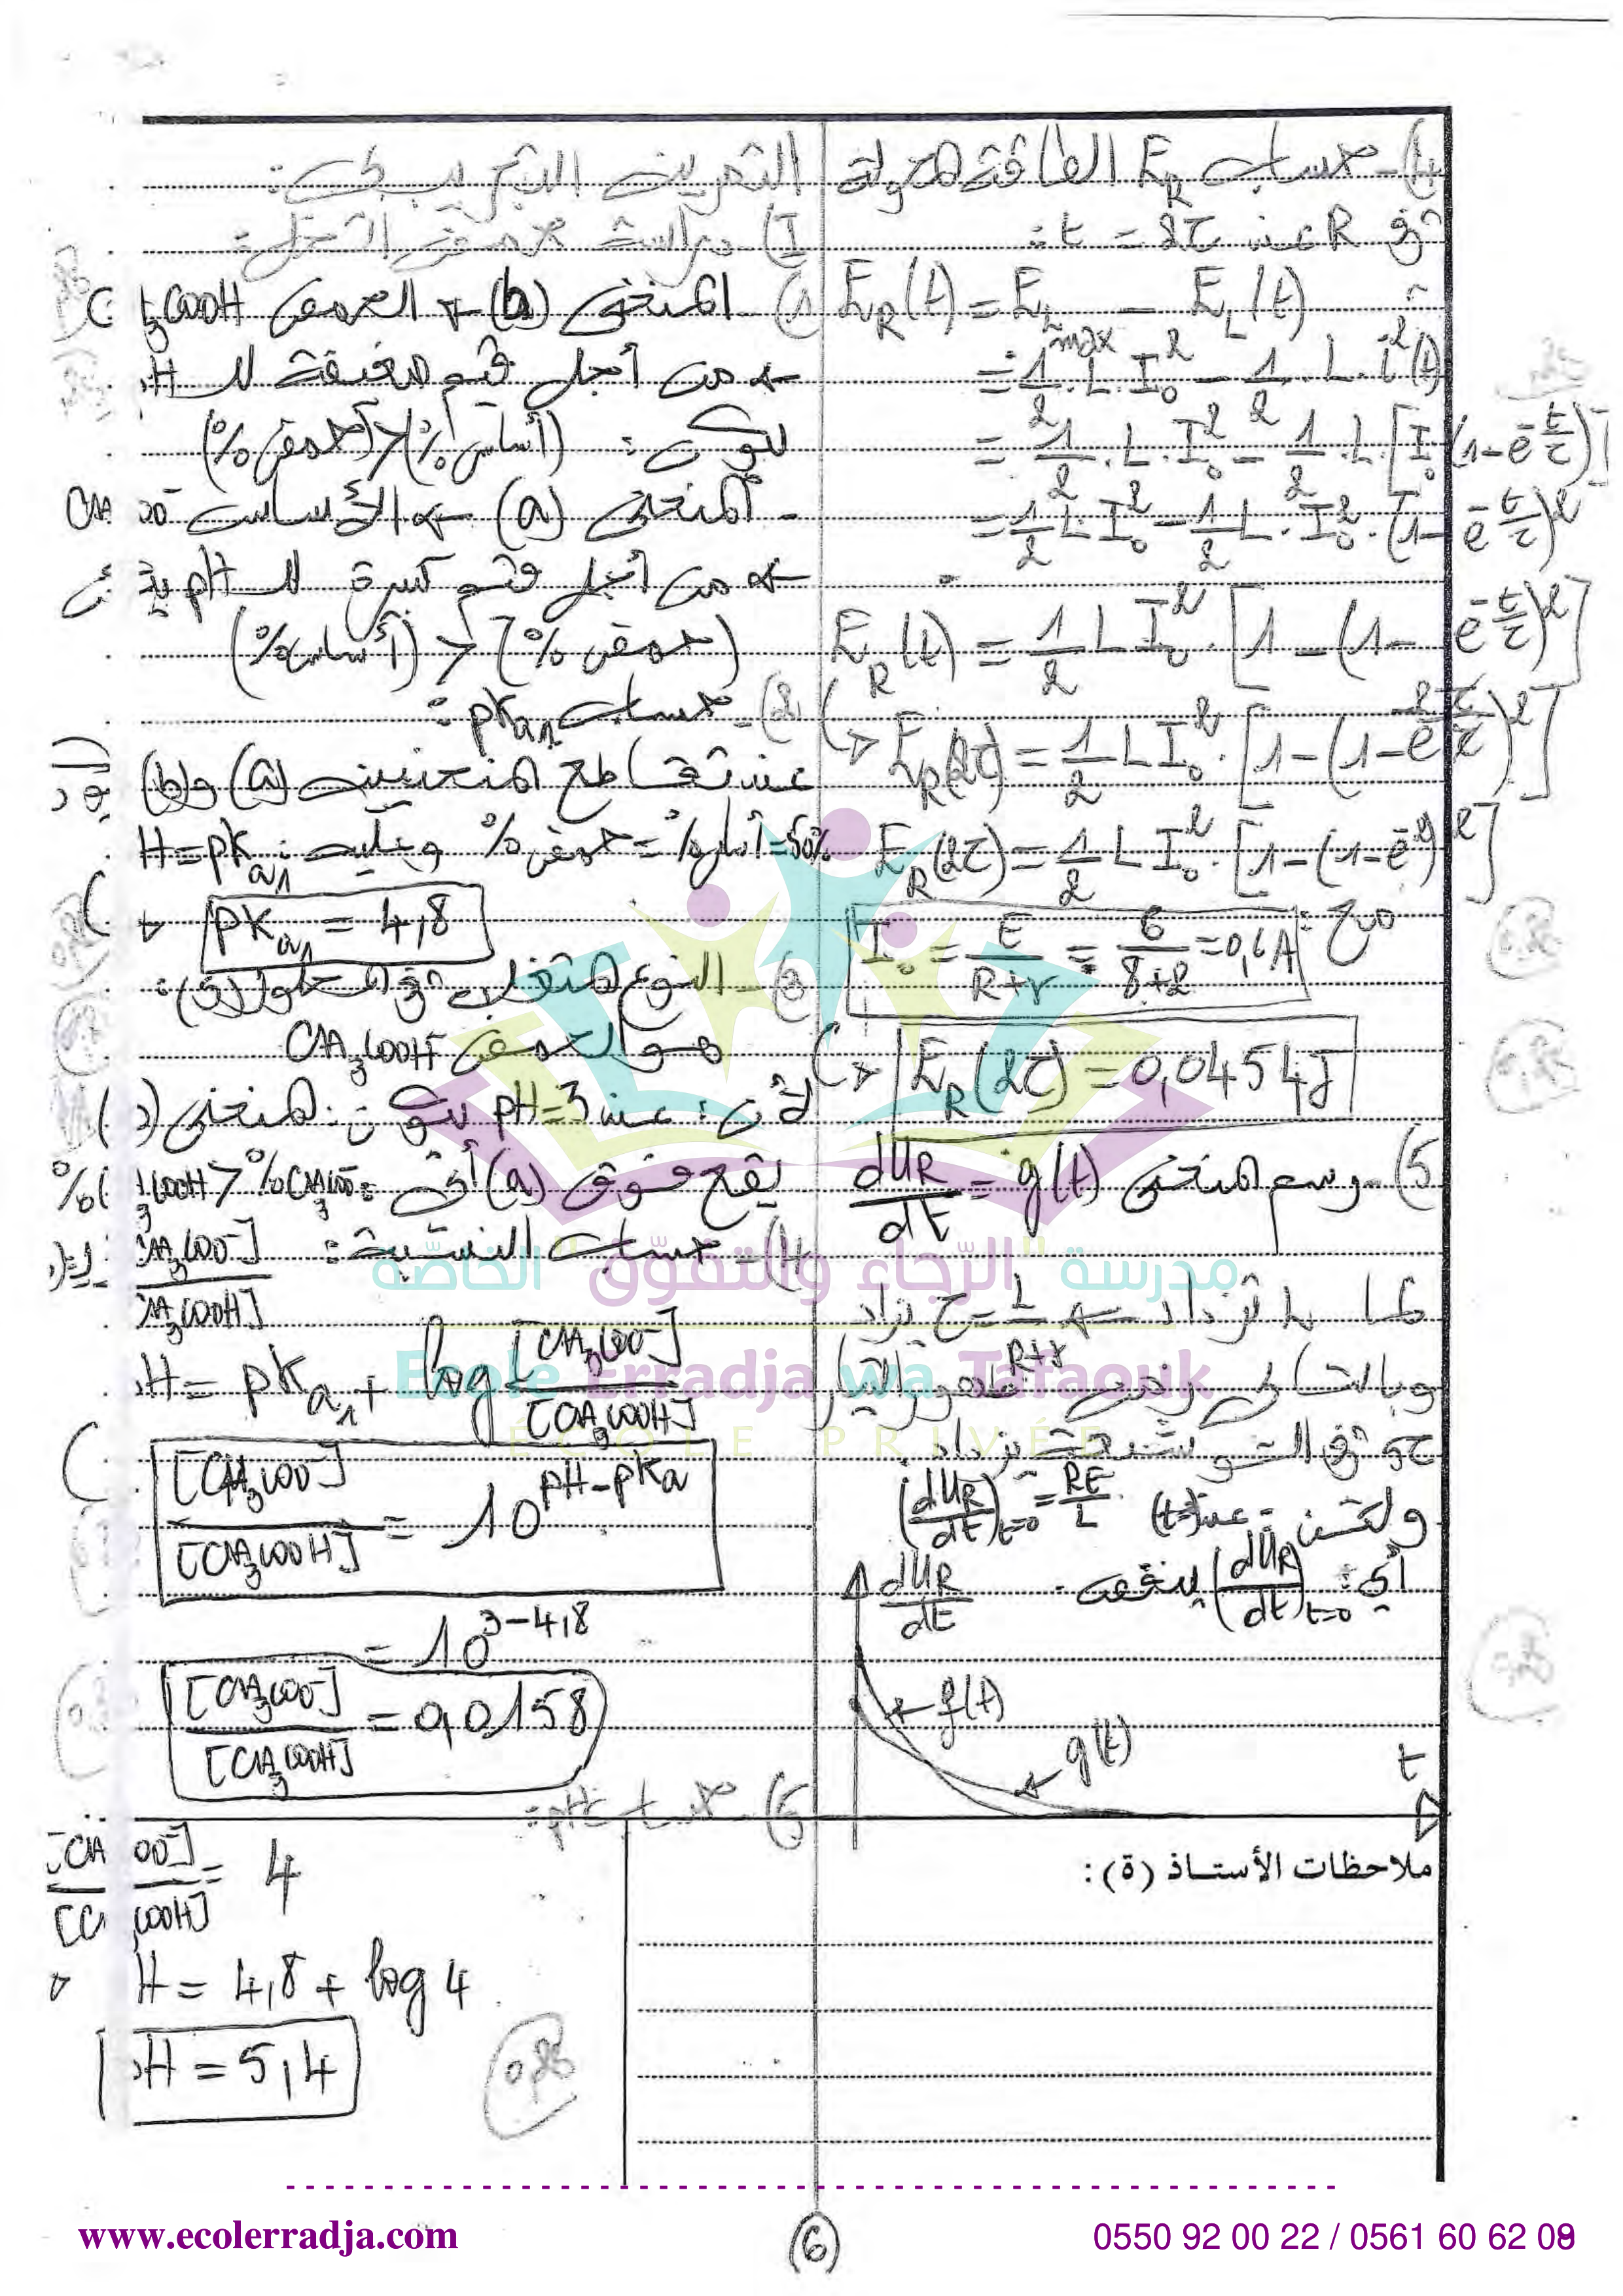 4)- حساب E_R الطاقة المحولة
في R عند t = 2τ :
E_R(t) = E_L max − E_L(t)
= 1/2 . L . I₀² − 1/2 . L . i²(t)
= 1/2 . L . I₀² − 1/2 . L . [I₀(1−e^(−t/τ))]
= 1/2 L I₀² − 1/2 L . I₀² . (1−e^(−t/τ))²
E_R(t) = 1/2 L I₀² . [1 − (1−e^(−t/τ))²]
E_R(2τ) = 1/2 L I₀² . [1−(1−e^(−2τ/τ))²]
E_R(2τ) = 1/2 L I₀² . [1−(1−e^(−2))²]
مع : I₀ = E/(R+r) = 6/(8+2) = 0,6A
E_R(2τ) = 0,0454J
5)- رسم المنحنى dU_R/dt = g(t)
لما L تزداد ← τ = L/(R+r) يزداد
وبالتالي زمن ظهور التيار
ولكن عند (t=0) (dU_R/dt)_t=0 = RE/L
أي : (dU_R/dt)_t=0 ينقص
dU_R/dt
f(t)
g(t)
t
التمرين التجريبي :
I) دراسة حمض الخل :
1) المنحنى (b) ← الحمض CH₃COOH
← من أجل قيم ضعيفة لـ H
يكون : (أساس%) < (حمض%)
- المنحنى (a) ← الأساس CH₃COO⁻
← من أجل قيم كبيرة لـ pH
(حمض%) < (أساس%)
2)- حساب pKa₁ :
عند تقاطع المنحنيين (a) و (b)
%حمض = %أساس = 50% وبالتالي : H = pKa₁
pKa₁ = 4,8
3)- النوع المتغلب في المحلول :
هو الحمض CH₃COOH
لأن : عند pH=3 يكون المنحنى
يقع فوق (a) أي : %CH₃COOH > %CH₃COO⁻
4)- حساب النسبة : [CH₃COO⁻]/[CH₃COOH]
H = pKa₁ + log [CH₃COO⁻]/[CH₃COOH]
[CH₃COO⁻]/[CH₃COOH] = 10^(pH−pKa)
= 10^(3−4,8)
[CH₃COO⁻]/[CH₃COOH] = 0,0158
5)- حساب pH :
[CH₃COO⁻]/[CH₃COOH] = 4
H = 4,8 + log 4
H = 5,4
ملاحظات الأستاذ (ة):
مدرسة "الرّجاء والتفوّق" الخاصّة
Ecole Erradja wa Tafaouk
ÉCOLE PRIVÉE
www.ecolerradja.com
6
0550 92 00 22 / 0561 60 62 09